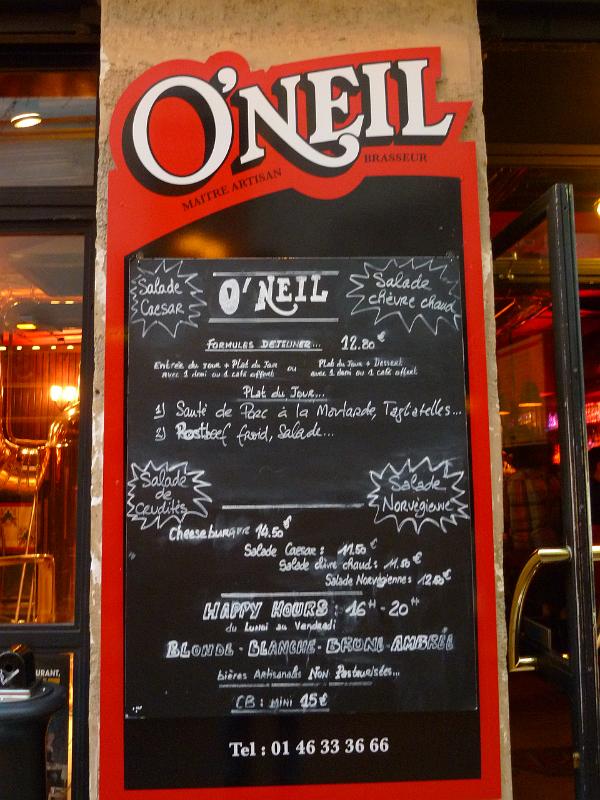 O'NEIL
MAITRE ARTISAN BRASSEUR
Salade
Caesar
O'NEIL
Salade
chèvre chaud
FORMULES DEJEUNER... 12.80€
Entrée du jour + Plat du Jour ou Plat du Jour + Dessert
avec 1 demi ou 1 café offert avec 1 demi ou 1 café offert
Plat du Jour...
1) Sauté de Porc à la Moutarde, Tagliatelles...
2) Rostbeef froid, Salade...
Salade
de
Crudités
Salade
Norvégienne
Cheeseburger 14.50€
Salade Caesar : 11.50€
Salade chèvre chaud : 11.50€
Salade Norvégienne : 12.50€
HAPPY HOURS : 16H - 20H
du Lundi au Vendredi
BLONDE - BLANCHE - BRUNE - AMBRÉE
bières Artisanales Non Pasteurisées...
CB : MINI 15€
Tel : 01 46 33 36 66